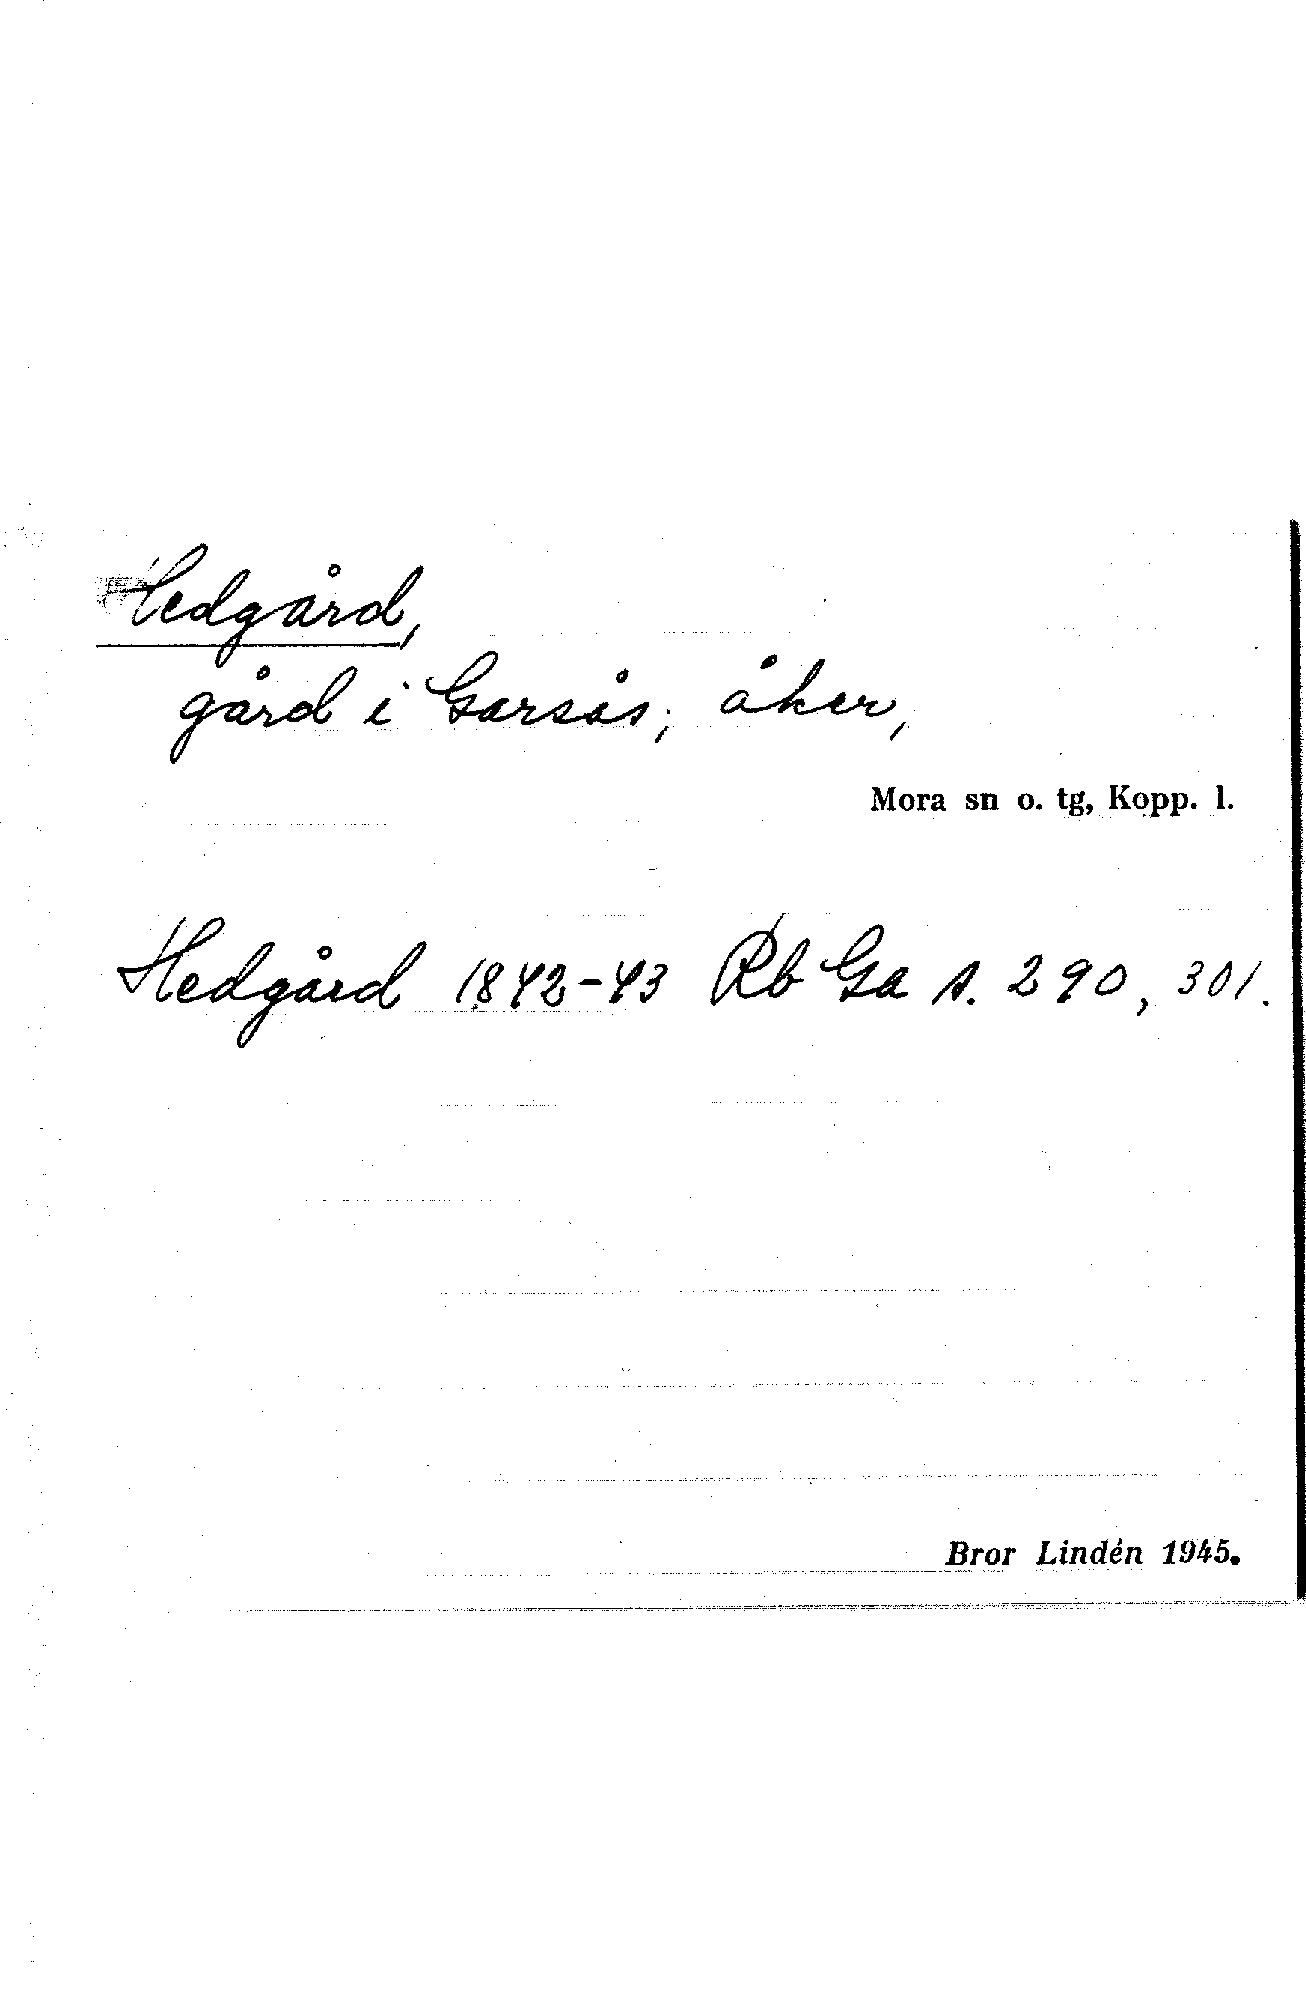 Hedgård,
gård i Garsås; åker,
Mora sn o. tg, Kopp. l.
Hedgård 1842-43 Rb Ga s. 290, 301.
Bror Lindén 1945.